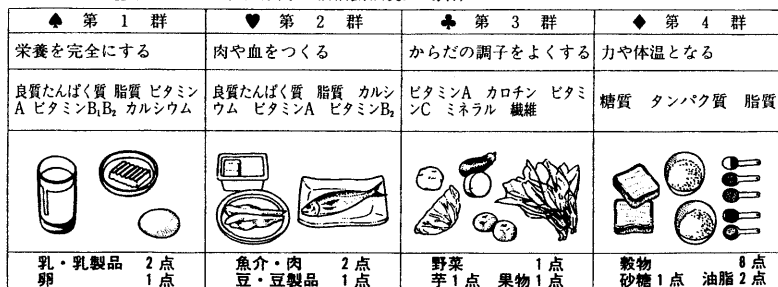 ♠ 第 1 群
♥ 第 2 群
♣ 第 3 群
♦ 第 4 群
栄養を完全にする
肉や血をつくる
からだの調子をよくする
力や体温となる
良質たんぱく質 脂質 ビタミン
A ビタミンB₁B₂ カルシウム
良質たんぱく質 脂質 カルシ
ウム ビタミンA ビタミンB₂
ビタミンA カロチン ビタミ
ンC ミネラル 繊維
糖質 タンパク質 脂質
乳・乳製品 2点
卵 1点
魚介・肉 2点
豆・豆製品 1点
野菜 1点
芋1点 果物1点
穀物 8点
砂糖1点 油脂2点